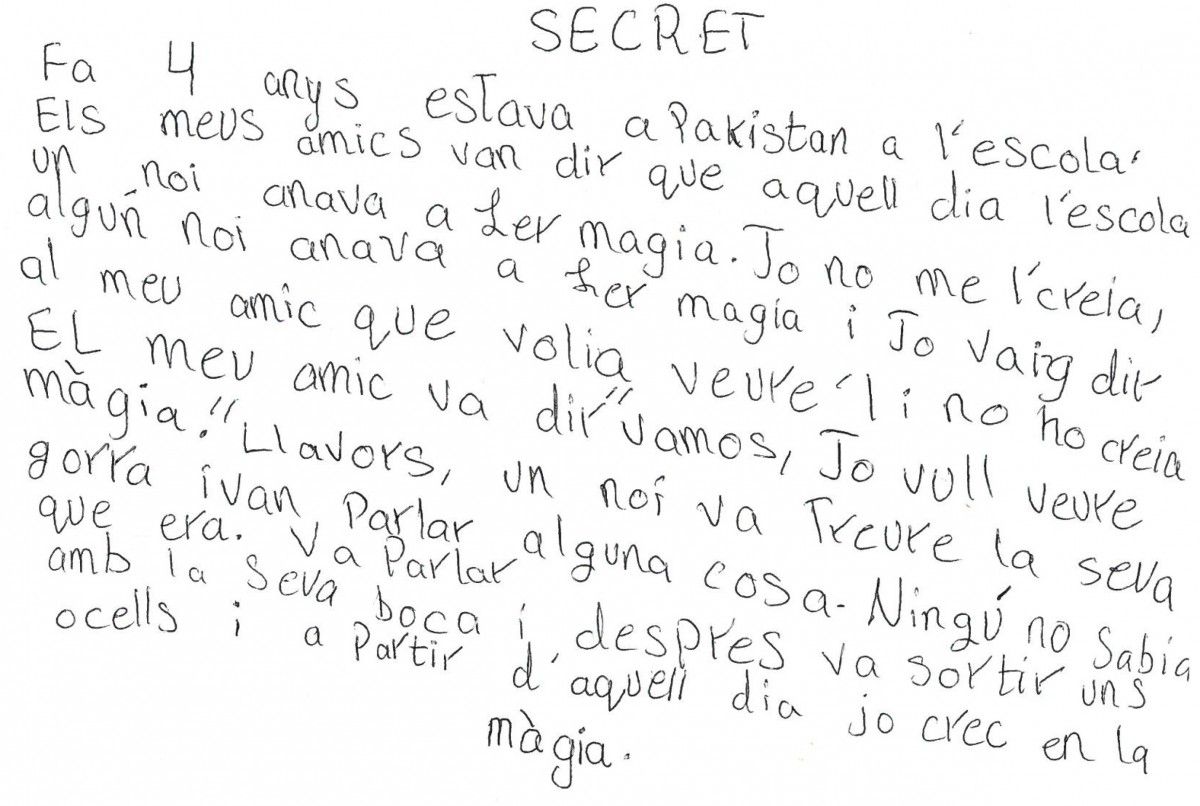 SECRET
Fa 4 anys estava a Pakistan a l'escola.
Els meus amics van dir que aquell dia l'escola
un noi anava a fer magia. Jo no me l'creia,
algún noi anava a fer magia i Jo vaig dir
al meu amic que volia veure'l i no ho creia
EL meu amic va dir "vamos, Jo vull veure
màgia!" Llavors, un noi va Treure la seva
gorra i van Parlar alguna cosa. Ningú no Sabia
que era. Va Parlar
amb la Seva boca i despres va sortir uns
ocells i a Partir d'aquell dia jo crec en la
màgia.